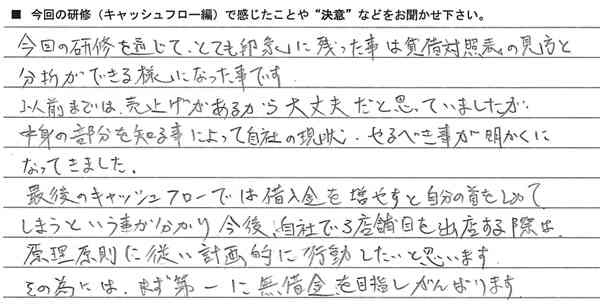 ■ 今回の研修（キャッシュフロー編）で感じたことや“決意”などをお聞かせ下さい。
今回の研修を通じて、とても印象に残った事は貸借対照表の見方と
分析ができる様になった事です.
以前までは、売上げがあるから大丈夫だと思っていましたが.
中身の部分を知る事によって自社の現状、やるべき事が明かくに
なってきました.
最後のキャッシュフローでは借入金を増やすと自分の首をしめて
しまうという事が分かり 今後、自社で3店舗目を出店する際は、
原理原則に従い計画的に行動したいと思います.
その為には、まず第一に無借金を目指しがんばります